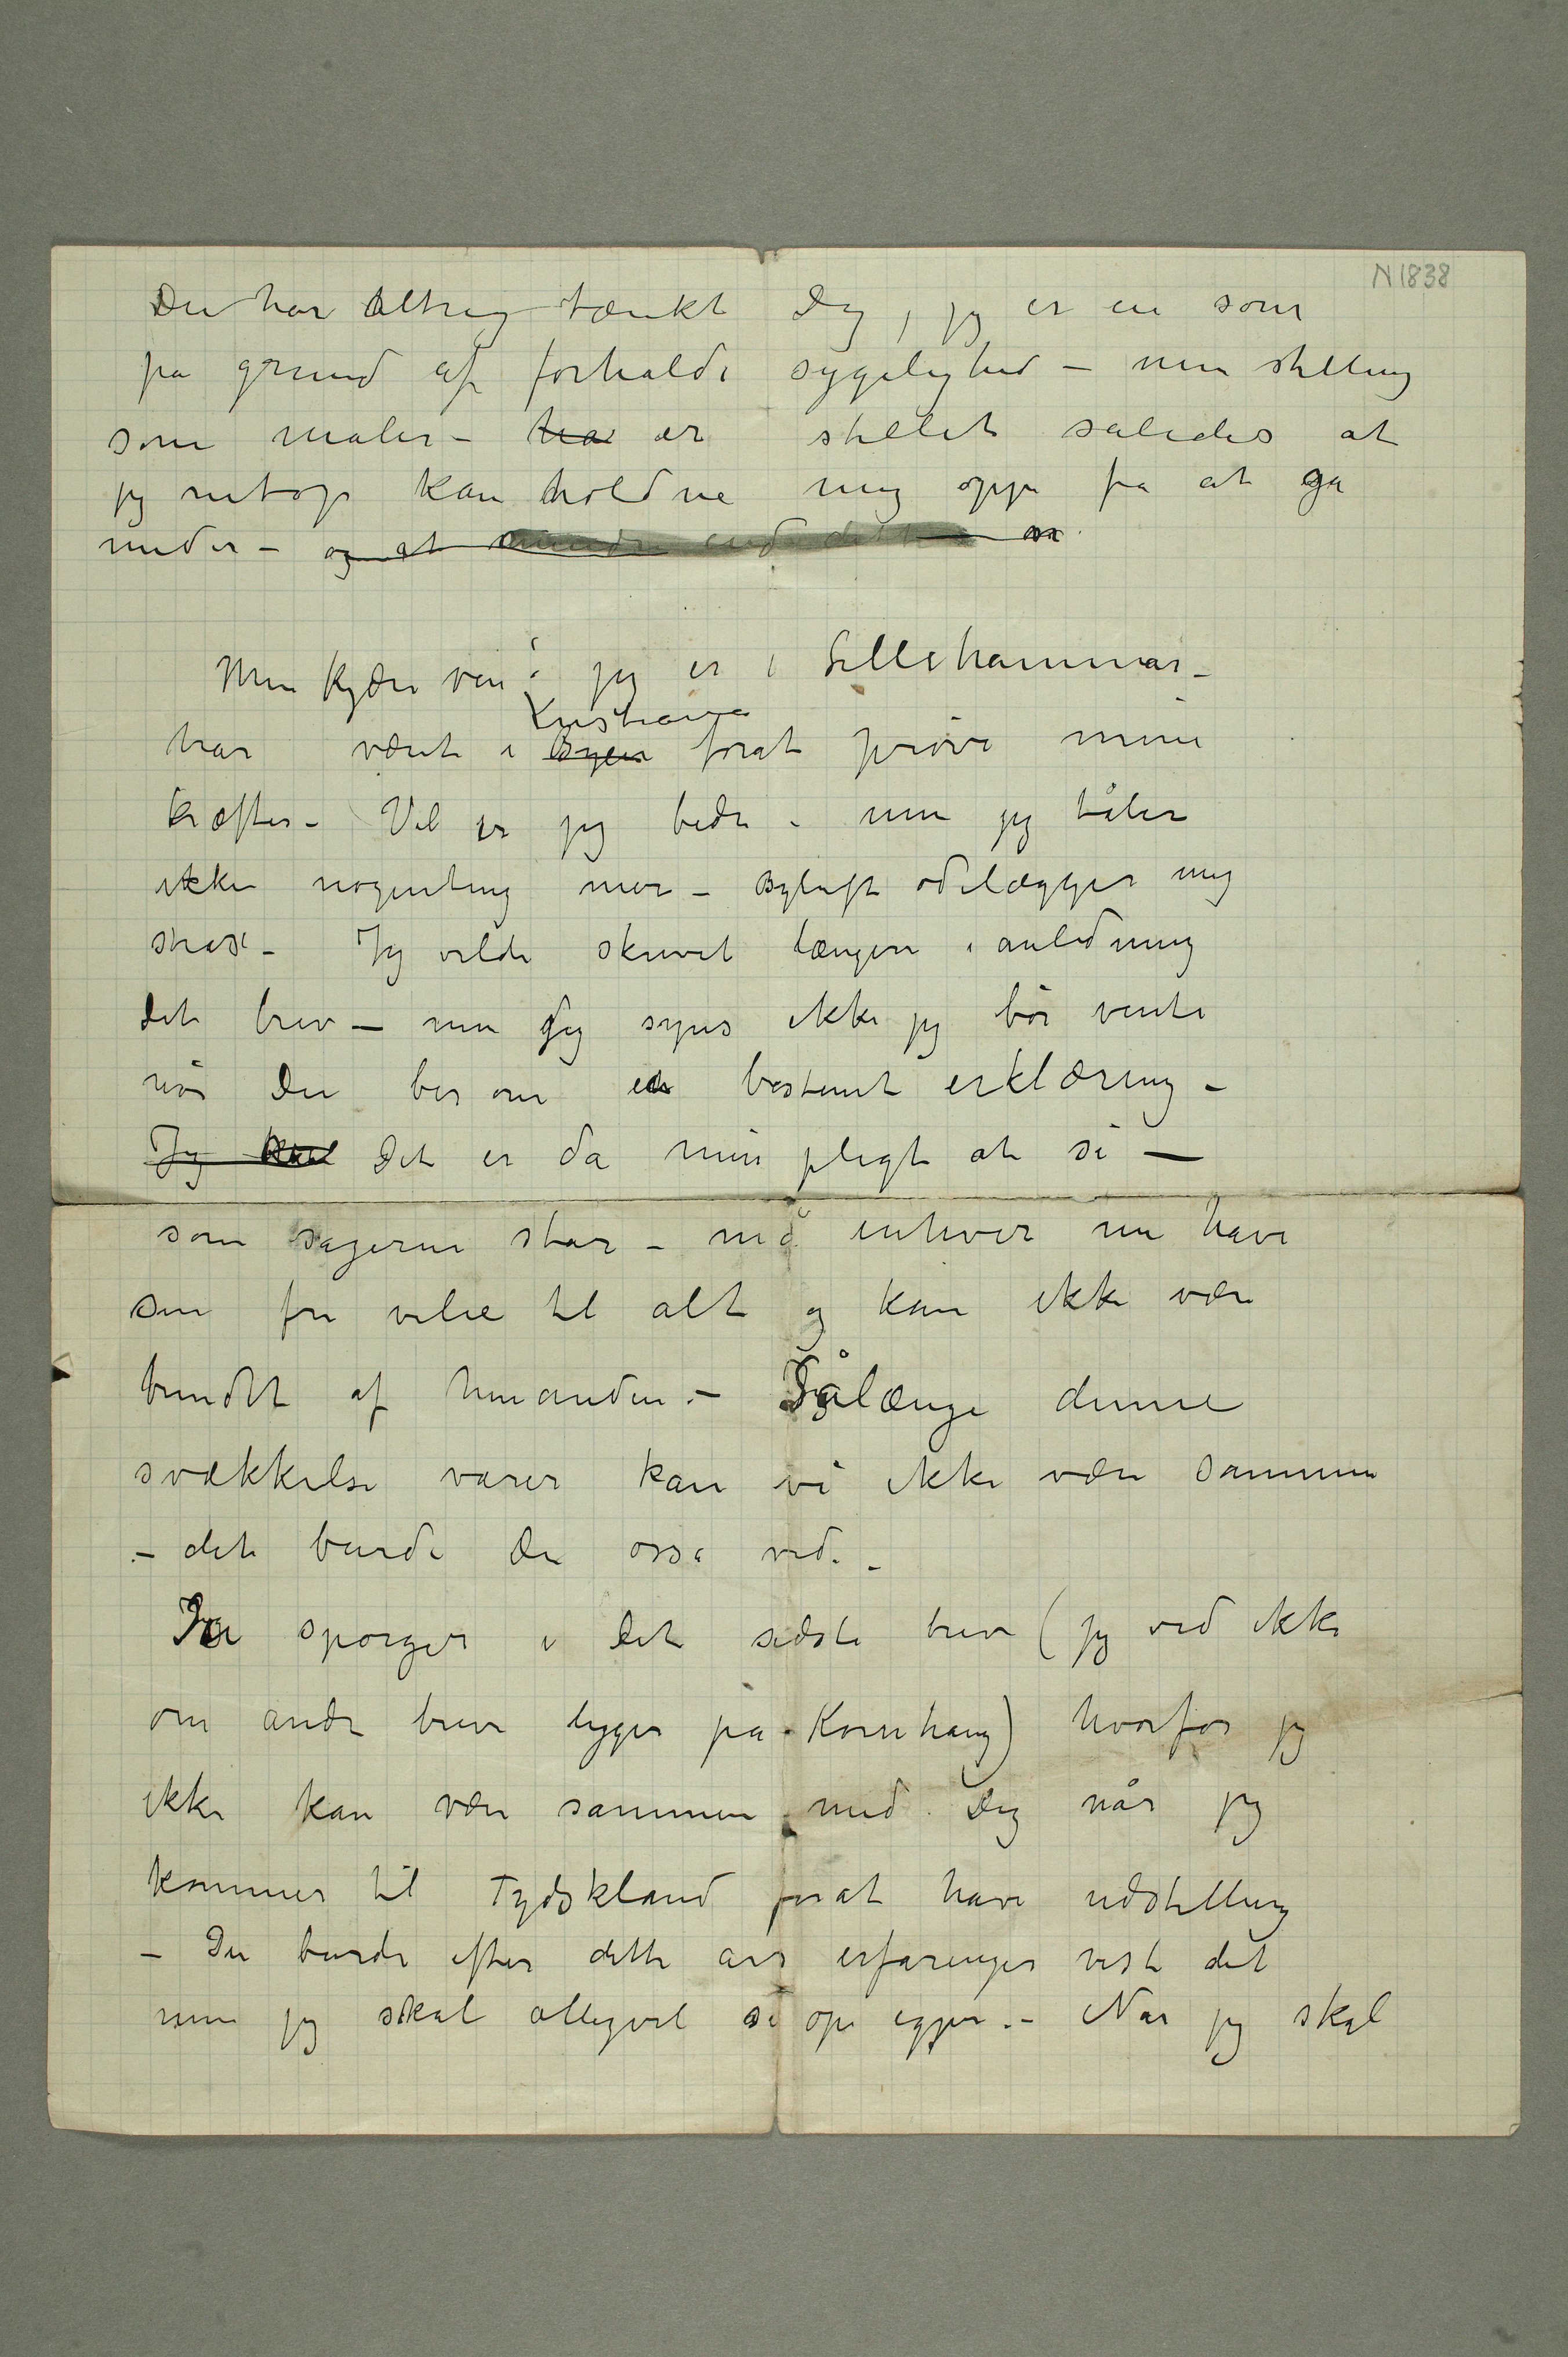 N 1838
Du har altrig tænkt Dig, jeg er en som
på grund af forholde sygelighed – min stilling
som maler – har er stillet således at
jeg netop kan holdne mig oppe fra at gå
neder – og at mindre end dette er
Min kjære ven! jeg er i Lillehammer –
Kristiania
har været i Byen forat prøve mine
kræfter – Vel er jeg bedre – men jeg tåler
ikke nogenting mer – Byluft ødelægger mig
strax – Jeg vilde skrevet længere i anledning
dit brev – men jeg synes ikke jeg bør vente
når Du ber om en bestemt erklæring –
Jeg skal Det er da min pligt at si –
som sagerne står – må enhver nu have
sin fri vilie til alt og kan ikke være
bundet af hinanden. – Sålænge denne
svækkelse varer kan vi ikke være sammen
– det burde Du osså vide. –
Du spørger i dit sidste brev (jeg ved ikke
om andre breve ligger på Kornhaug) hvorfor jeg
ikke kan være sammen med Dig når jeg
kommer til Tydskland forat have udstilling
– Du burde efter dette års erfaringer vist det
men jeg skal alligevel si op igjen. – Når jeg skal